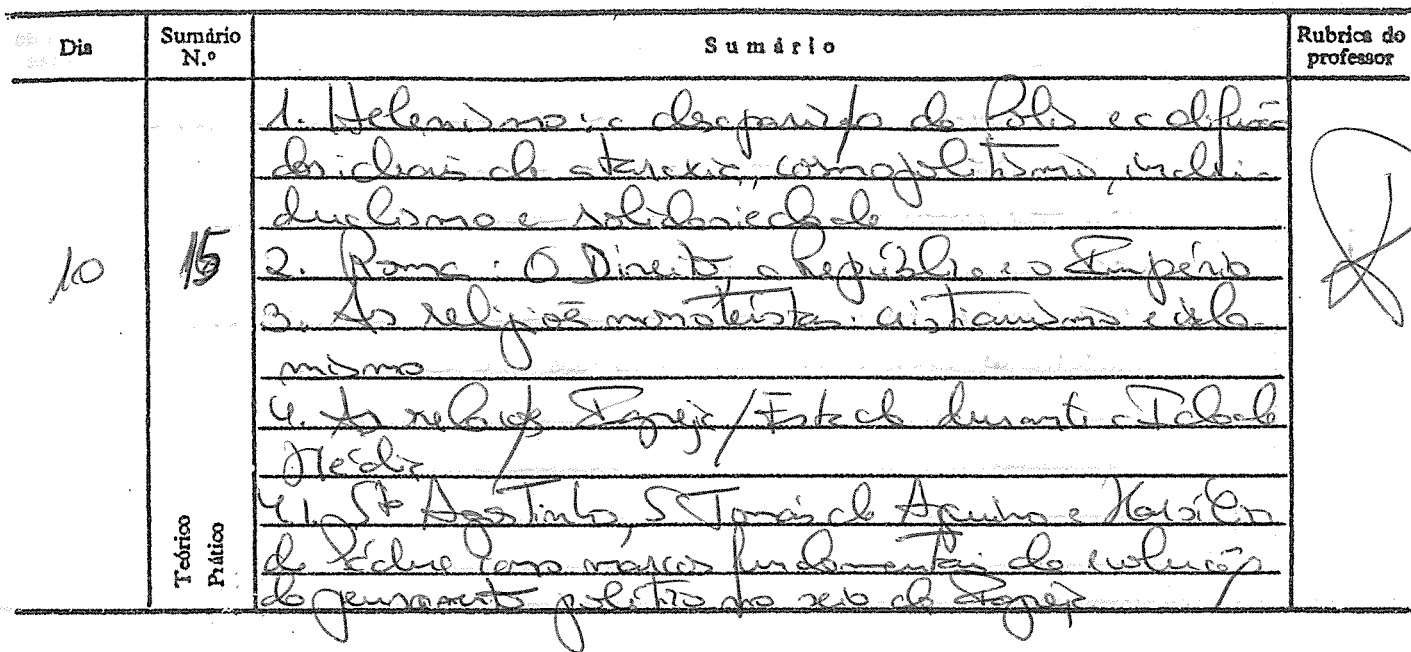 Dia
Sumário N.º
Sumário
Rubrica do professor
10
15
Teórico
Prático
1. Helenismo: a desaparição da Polis e a difusão
dos ideais de ataraxia, cosmopolitismo, indivi-
dualismo e solidariedade
2. Roma: O Direito, a República e o Império
3. As religiões monoteístas: cristianismo e isla-
mismo
4. As relações Igreja/Estado durante a Idade
Média
4.1. Stº Agostinho, S. Tomás de Aquino e Marsílio
de Pádua como marcos fundamentais da evolução
do pensamento político no seio da Igreja